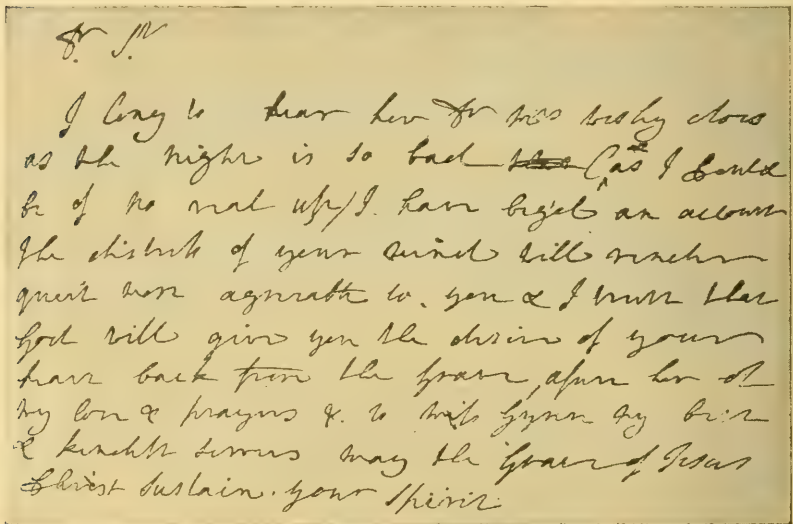 Dr Sir
I long to hear how Dr Mrs Wesley does
as the night is so bad (as I could
be of no real use) I have beg'd an account
The distress of your mind will render
quiet more agreeable to you & I trust that
God will give you the desire of your
heart back from the Grave, assure her of
my love & prayers & to Miss Gwynn my best
& kindest services may the Grace of Jesus
Christ sustain your Spirit